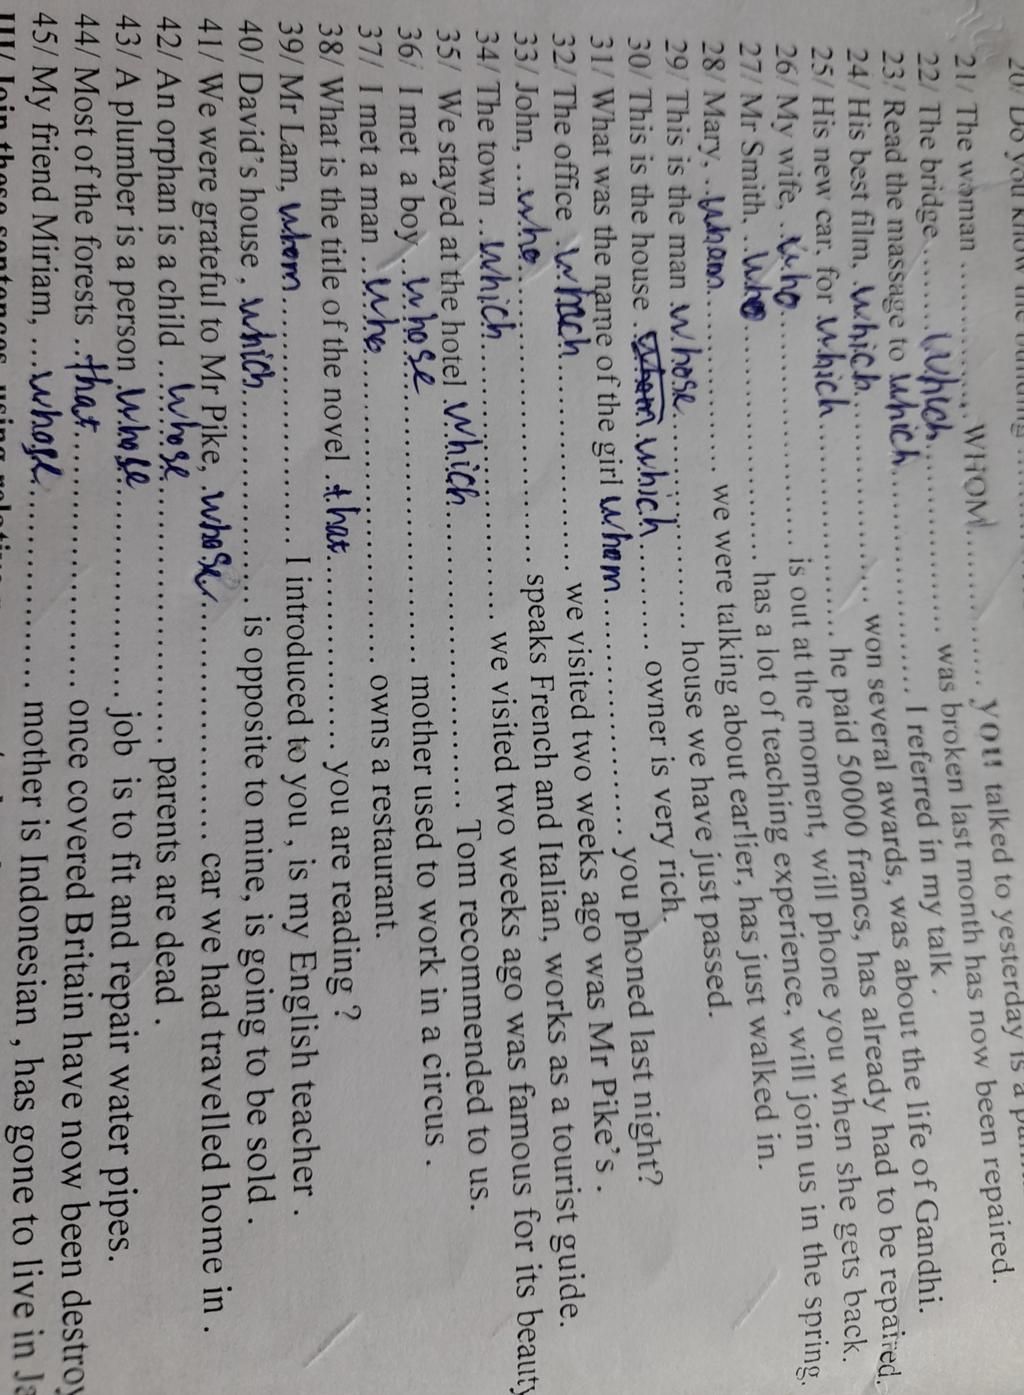 20/ Do you know the building
21/ The woman ............ WHOM ............ you talked to yesterday is a
22/ The bridge ........ which ............ was broken last month has now been repaired.
23/ Read the massage to which ............ I referred in my talk .
24/ His best film, which ............ won several awards, was about the life of Gandhi.
25/ His new car, for which ............ he paid 50000 francs, has already had to be repaired.
26/ My wife, .. who ............ is out at the moment, will phone you when she gets back.
27/ Mr Smith, .. who ............ has a lot of teaching experience, will join us in the spring.
28/ Mary, .. whom ............ we were talking about earlier, has just walked in.
29/ This is the man . whose ............ house we have just passed.
30/ This is the house . whom which ........ owner is very rich.
31/ What was the name of the girl whom ............ you phoned last night?
32/ The office . which ............ we visited two weeks ago was Mr Pike's .
33/ John, ... who ............ speaks French and Italian, works as a tourist guide.
34/ The town .. which ............ we visited two weeks ago was famous for its beauty
35/ We stayed at the hotel . which ............ Tom recommended to us.
36/ I met a boy .. whose ............ mother used to work in a circus .
37/ I met a man ... who ............ owns a restaurant.
38/ What is the title of the novel . that ............ you are reading ?
39/ Mr Lam, whom ............ I introduced to you , is my English teacher .
40/ David's house , which ............ is opposite to mine, is going to be sold .
41/ We were grateful to Mr Pike, . whose ............ car we had travelled home in .
42/ An orphan is a child .... whose ............ parents are dead .
43/ A plumber is a person . whose ............ job is to fit and repair water pipes.
44/ Most of the forests .. that ............ once covered Britain have now been destroy
45/ My friend Miriam, ... whose ............ mother is Indonesian , has gone to live in Ja
III/ Join these sentences, using